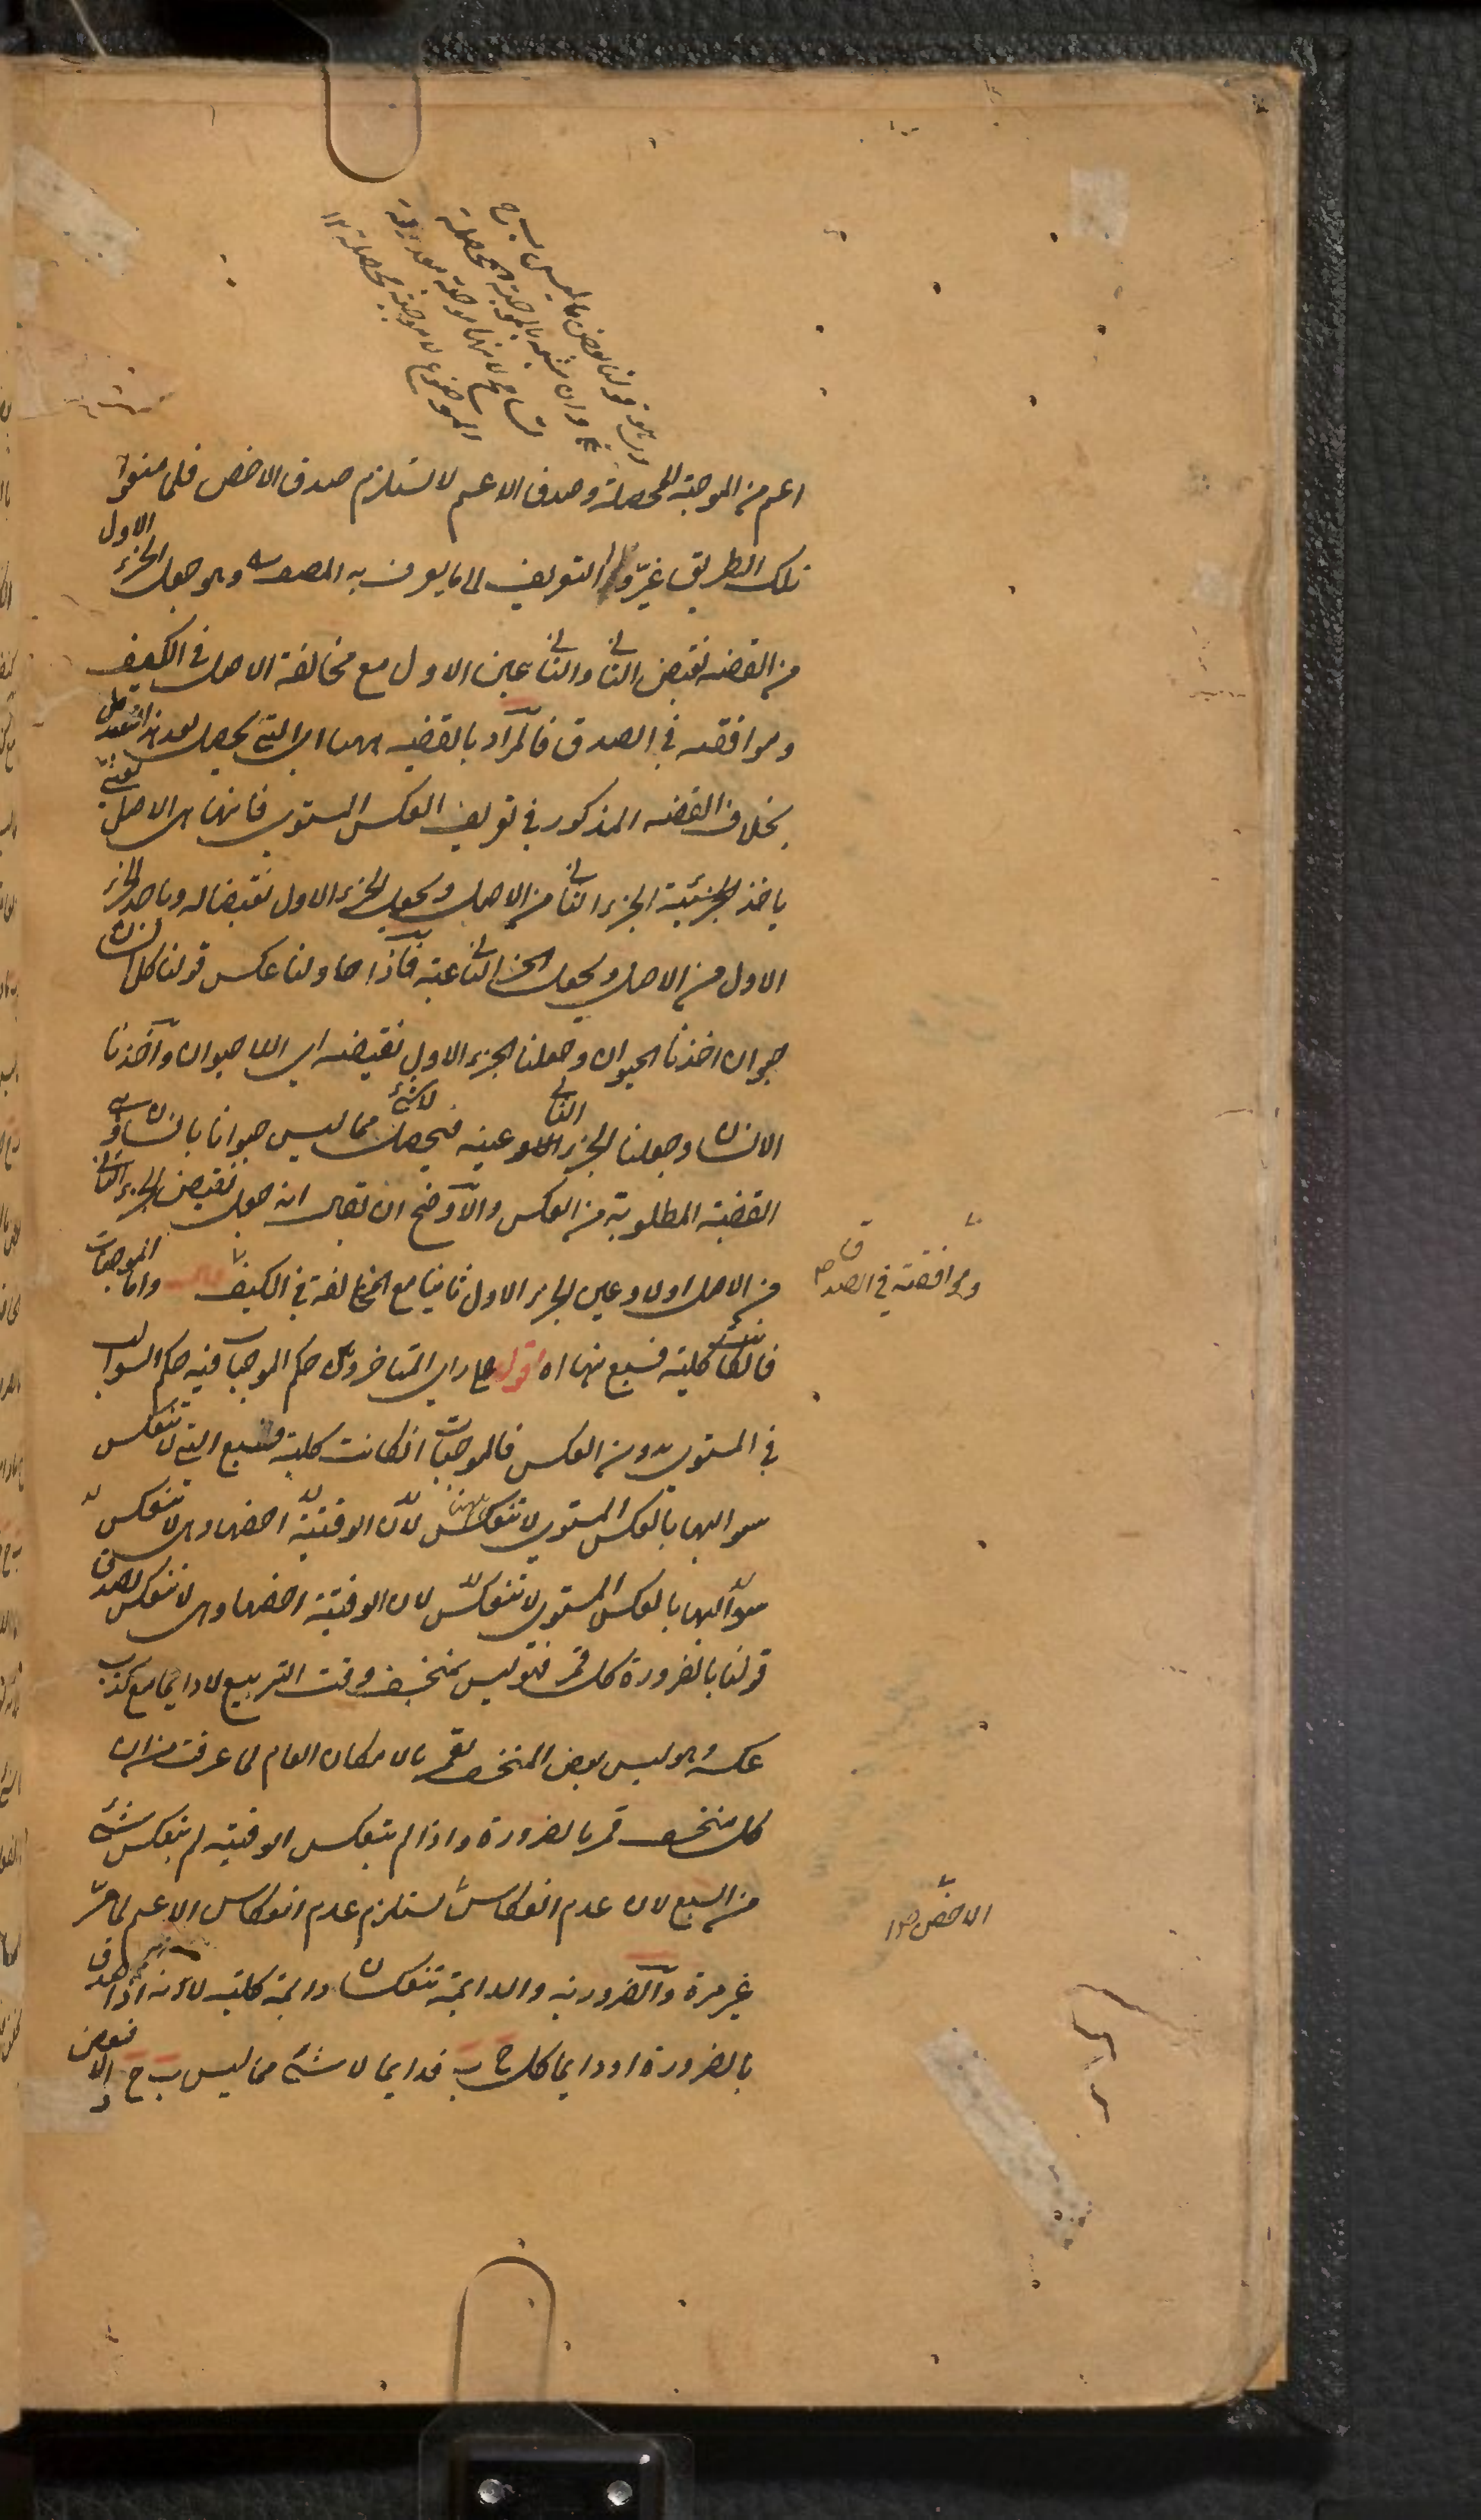 اعم من الموجبة المحصلة وصدق الاعم لا يستلزم صدق الاخص فلما منعوا
تلك الطريق غيروا التعريف الى ما يعرف به المصنف وهو جعل الجزء الاول
من القضية نقيض الثاني والثاني عين الاول مع مخالفة الاصل في الكيف
وموافقته في الصدق فالمراد بالقضية ههنا هي التي يحصل بعد هذا التبديل
بخلاف القضية المذكور في تعريف العكس المستوي فانها هي الاصل
ياخذ الجزء الثاني من الاصل ويجعل الجزء الاول نقيضا له وياخذ الجزء
الاول من الاصل ويجعل الجزء الثاني عينه فاذا حاولنا عكس قولنا كل انسان
حيوان اخذنا الحيوان وجعلنا الجزء الاول نقيضه اي اللا حيوان واخذنا
الانسان وجعلنا الجزء الثاني عينه فيحصل لا شئ مما ليس حيوانا بانسان وهي
القضية المطلوبة من العكس والاوضح ان يقال انه جعل نقيض الجزء الثاني
من الاصل اولا وعين الجزء الاول ثانيا مع المخالفة في الكيف قال واما الموجبات
وموافقته في الصدق صح
فان كانت كلية فسبع منها اه اقول على راي المتاخرين حكم الموجبات فيه حكم السوالب
في المستوي بدون العكس فالموجبات ان كانت كلية فسبع التي لا تنعكس
سوالبها بالعكس المستوي لا تنعكس ههنا لان الوقتية اخصها وهي لا تنعكس
سوالبها بالعكس المستوي لا تنعكس لان الوقتية اخصها وهي لا تنعكس لصدق
قولنا بالضرورة كل قمر فهو ليس بمنخسف وقت التربيع لا دايما مع كذب
عكسه وهو ليس بعض المنخسف بقمر بالامكان العام لما عرفت من ان
كل منخسف قمر بالضرورة واذا لم ينعكس الوقتية لم ينعكس شئ
من السبع لان عدم انعكاس يستلزم عدم انعكاس الاعم لما مر
الاخص صح
غير مرة والضرورية والدايمة تنعكسان دايمة كلية لانه اذا صدق
بالضرورة او دايما كل ج ب فدايما لا شئ مما ليس ب ج والا فبعض